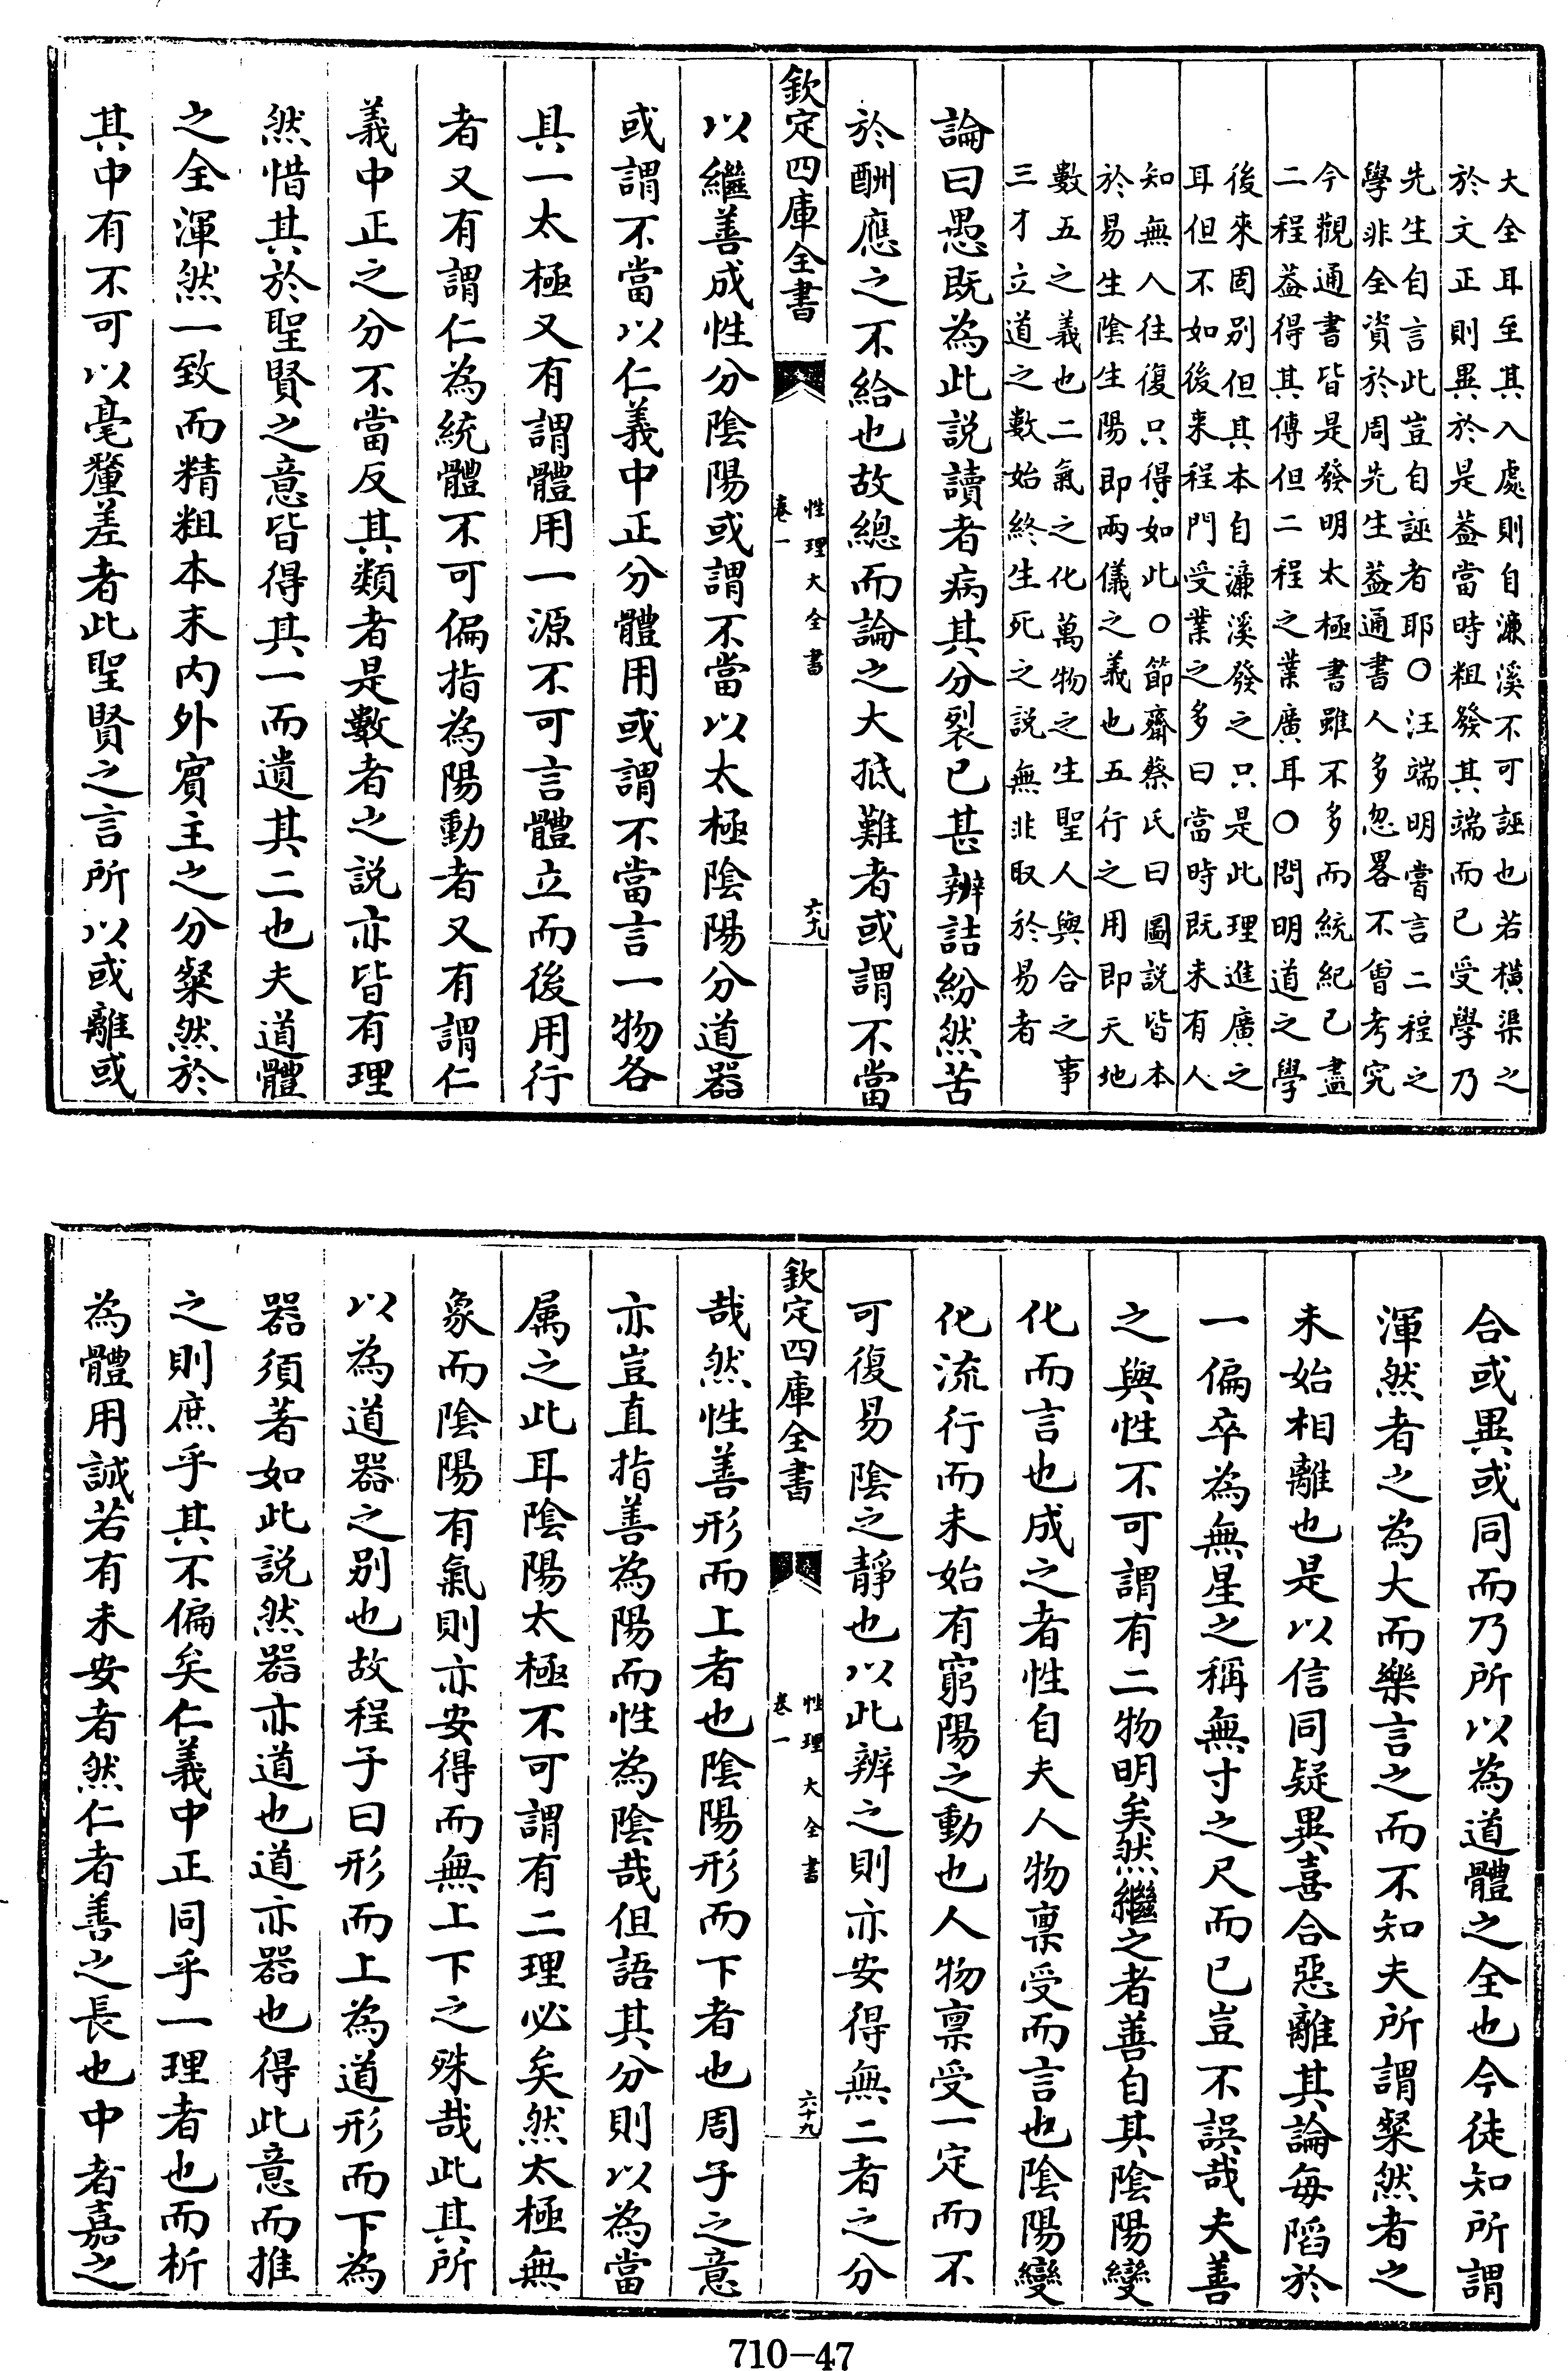 大全耳至其入處則自濂溪不可誣也若橫渠之
於文正則異於是蓋當時粗發其端而已受學乃
先生自言此豈自誣者耶○汪端明嘗言二程之
學非全資於周先生蓋通書人多忽畧不曾考究
今觀通書皆是發明太極書雖不多而統紀已盡
二程蓋得其傳但二程之業廣耳○問明道之學
後來固别但其本自濂溪發之只是此理進廣之
耳但不如後来程門受業之多曰當時既未有人
知無人往復只得如此○節齋蔡氏曰圖説皆本
於易生陰生陽即兩儀之義也五行之用即天地
數五之義也二氣之化萬物之生聖人與合之事
三才立道之數始終生死之説無非取於易者
論曰愚既為此説讀者病其分裂已甚辨詰紛然苦
於酬應之不給也故總而論之大抵難者或謂不當
欽定四庫全書
性理大全書
卷一
六九
以繼善成性分陰陽或謂不當以太極陰陽分道器
或謂不當以仁義中正分體用或謂不當言一物各
具一太極又有謂體用一源不可言體立而後用行
者又有謂仁為統體不可偏指為陽動者又有謂仁
義中正之分不當反其類者是數者之説亦皆有理
然惜其於聖賢之意皆得其一而遺其二也夫道體
之全渾然一致而精粗本末内外賓主之分粲然於
其中有不可以毫釐差者此聖賢之言所以或離或
合或異或同而乃所以為道體之全也今徒知所謂
渾然者之為大而樂言之而不知夫所謂粲然者之
未始相離也是以信同疑異喜合惡離其論毎陷於
一偏卒為無星之稱無寸之尺而已豈不誤哉夫善
之與性不可謂有二物明矣然繼之者善自其陰陽變
化而言也成之者性自夫人物禀受而言也陰陽變
化流行而未始有窮陽之動也人物禀受一定而不
可復易陰之靜也以此辨之則亦安得無二者之分
欽定四庫全書
性理大全書
卷一
六十九
哉然性善形而上者也陰陽形而下者也周子之意
亦豈直指善為陽而性為陰哉但語其分則以為當
属之此耳陰陽太極不可謂有二理必矣然太極無
象而陰陽有氣則亦安得而無上下之殊哉此其所
以為道器之别也故程子曰形而上為道形而下為
器須著如此説然器亦道也道亦器也得此意而推
之則庶乎其不偏矣仁義中正同乎一理者也而析
為體用誠若有未安者然仁者善之長也中者嘉之
710-47